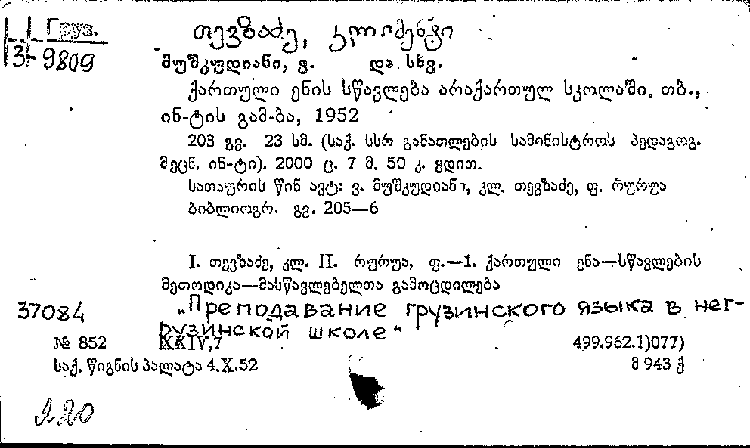 Груз.
3-9809
თევზაძე, კლიმენტი
მუშკუდიანი, ვ. და სხვ.
ქართული ენის სწავლება არაქართულ სკოლაში. თბ.,
ინ-ტის გამ-ბა, 1952
203 გვ. 23 სმ. (საქ. სსრ განათლების სამინისტროს პედაგოგ.
მეცნ. ინ-ტი). 2000 ც. 7 მ. 50 კ. ყდით.
სათაურის წინ ავტ: ვ. მუშკუდიანი, კლ. თევზაძე, ფ. რურუა
ბიბლიოგრ. გვ. 205—6
I. თევზაძე, კლ. II. რურუა, ფ.—1. ქართული ენა—სწავლების
მეთოდიკა—მასწავლებელთა გამოცდილება
37084 „Преподавание грузинского языка в нег-
рузинской школе"
№ 852 XXIV,7 499.962.1)077)
საქ. წიგნის პალატა 4.X.52 მ 943 ქ
220